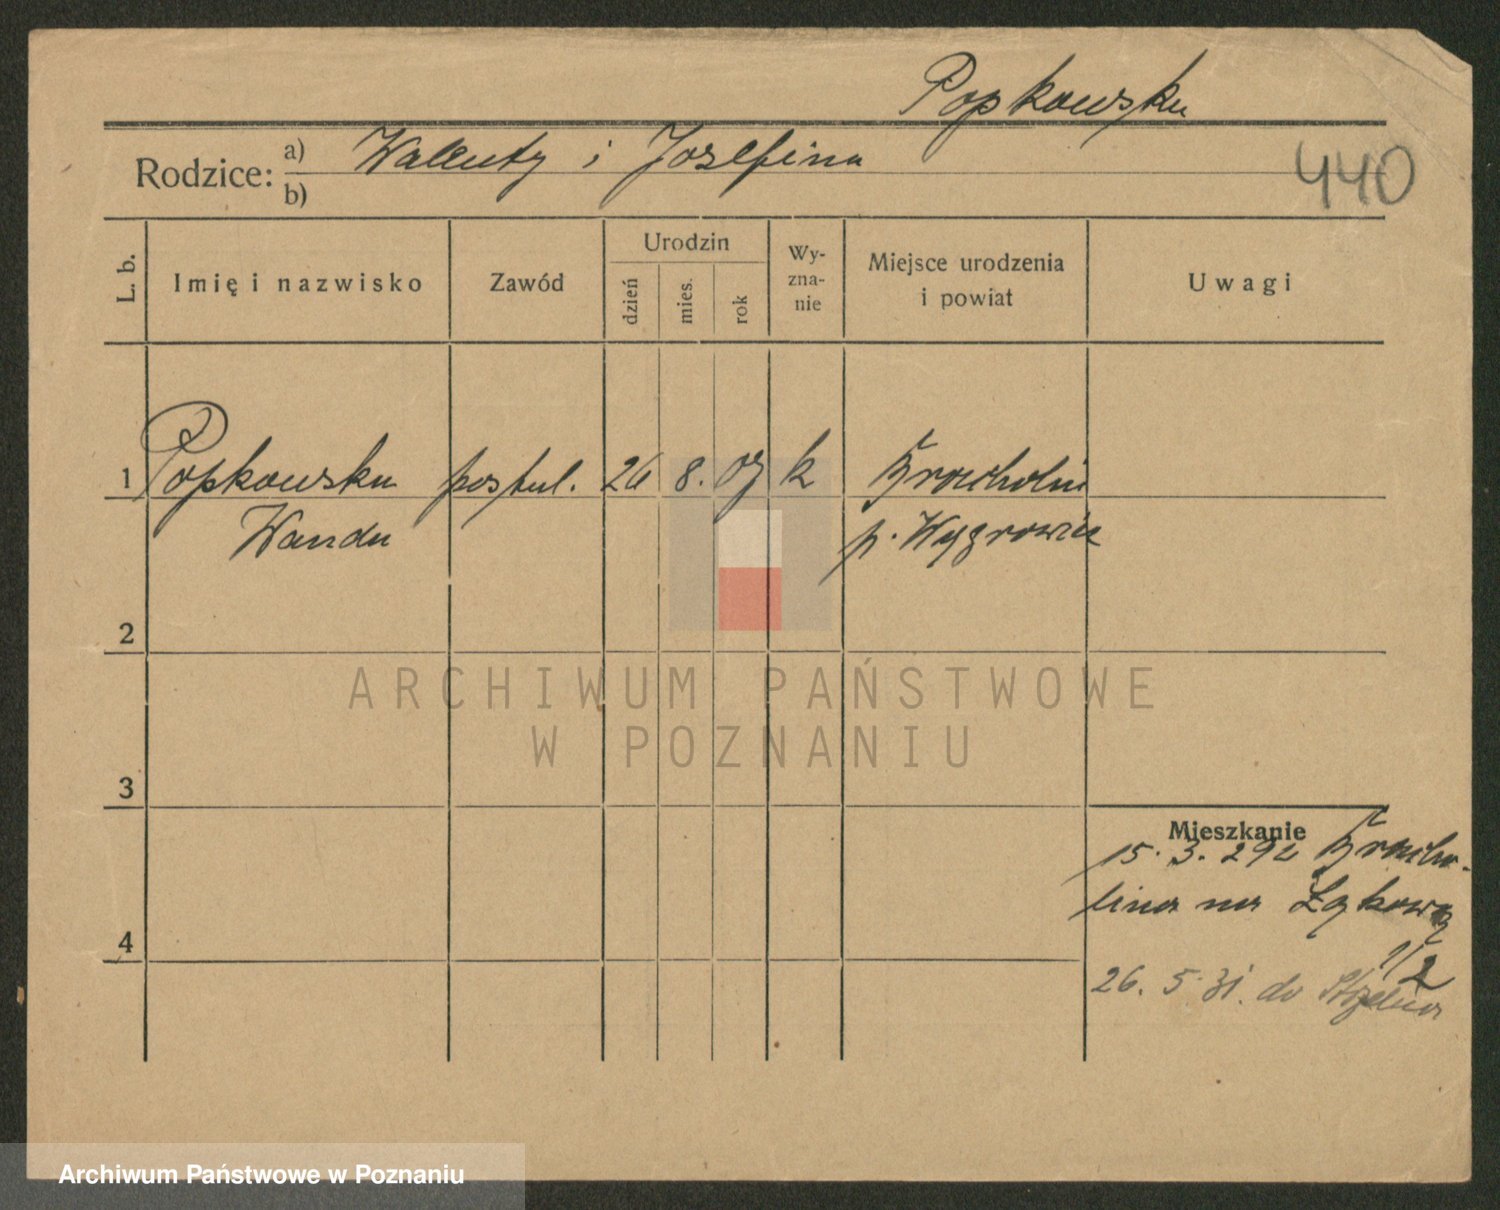 Popkowska
Rodzice: a) Walenty i Josefina
b)
440
L. b.
Imię i nazwisko
Zawód
Urodzin
dzień
mies.
rok
Wy-
zna-
nie
Miejsce urodzenia
i powiat
Uwagi
1 Popkowska postul. 26 8. 07 k Brzecholin
Wanda p. Wągrowiec
2
3
4
Mieszkanie
15. 3. 29 z
lina na Łąkową
1/2
26. 5. 31. do Strzelna
ARCHIWUM PAŃSTWOWE
W POZNANIU
Archiwum Państwowe w Poznaniu